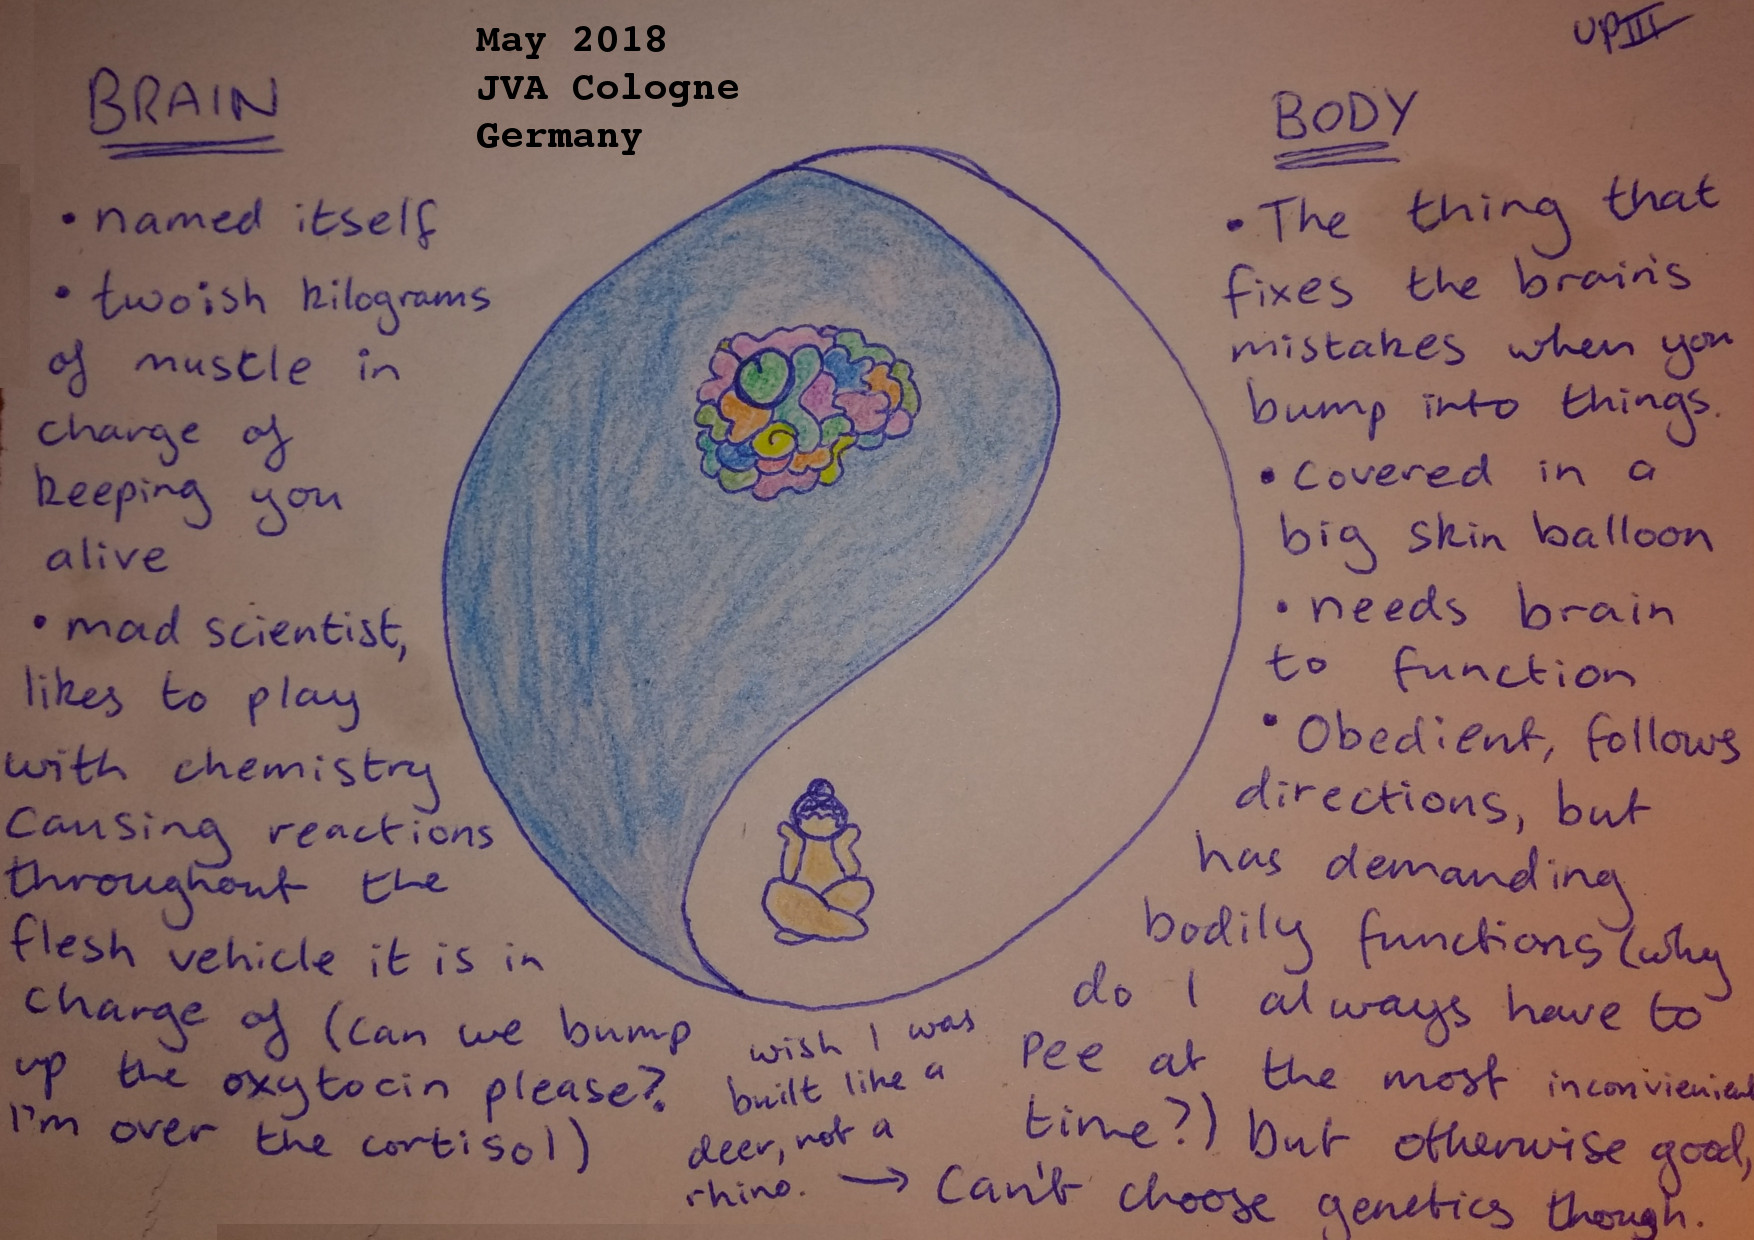 May 2018
JVA Cologne
Germany
UPIII
BRAIN
• named itself
• twoish kilograms
of muscle in
charge of
keeping you
alive
• mad scientist,
likes to play
with chemistry
causing reactions
throughout the
flesh vehicle it is in
charge of (can we bump
up the oxytocin please?
I'm over the cortisol)
BODY
• The thing that
fixes the brain's
mistakes when you
bump into things.
• Covered in a
big skin balloon
• needs brain
to function
• Obedient, follows
directions, but
has demanding
bodily functions (why
do I always have to
pee at the most inconvienient
time?) but otherwise good,
→ Can't choose genetics though.
wish I was
built like a
deer, not a
rhino.